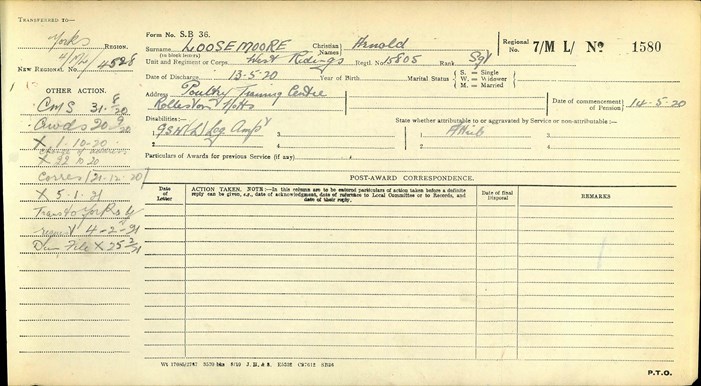 TRANSFERRED TO—
Yorks
REGION.
4528
NEW REGIONAL No.
OTHER ACTION.
CMS 31·8/20
Awds 20 9/20
X 1·10·20
Change of address
X 22 10 20
Corres 21-12-20
X 5-1-21
Trans to Yorks
X 4-2-21
File X 25 2/21
Form No. S.B 36.
Surname (in block letters) LOOSEMOORE Christian Names Arnold
Regional No. 7/M L/ No 1580
Unit and Regiment or Corps West Ridings Regtl. No. 15805 Rank Sgt
Date of Discharge 13·5·20 Year of Birth
Marital Status S. = Single W. = Widower M. = Married
Address Poultry Training Centre
Rolleston Notts
Date of commencement of Pension 14·5·20
Disabilities:— State whether attributable to or aggravated by Service or non-attributable:—
1 GSW (L) Leg Ampt 3 1 Attrib 3
2 4 2 4
Particulars of Awards for previous Service (if any)
POST-AWARD CORRESPONDENCE.
Date of Letter
ACTION TAKEN. NOTE:—In this column are to be entered particulars of action taken before a definite reply can be given, e.g., date of acknowledgment, date of reference to Local Committee or to Records, and date of their reply.
Date of final Disposal
REMARKS
P.T.O.